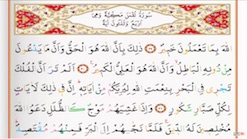 سُورَةُ لُقْمٰنَ مَكِّيَّةٌ وَهِيَ
أَرْبَعٌ وَثَلٰثُونَ اٰيَةً
اللَّهَ بِمَا تَعْمَلُونَ خَبِيرٌ ذَٰلِكَ بِأَنَّ اللَّهَ هُوَ الْحَقُّ وَأَنَّ مَا يَدْعُونَ
مِنْ دُونِهِ الْبَاطِلُ وَأَنَّ اللَّهَ هُوَ الْعَلِيُّ الْكَبِيرُ أَلَمْ تَرَ أَنَّ الْفُلْكَ
تَجْرِي فِي الْبَحْرِ بِنِعْمَتِ اللَّهِ لِيُرِيَكُمْ مِنْ اٰيَاتِهِ إِنَّ فِي ذَٰلِكَ لَاٰيَاتٍ
لِكُلِّ صَبَّارٍ شَكُورٍ وَإِذَا غَشِيَهُمْ مَوْجٌ كَالظُّلَلِ دَعَوُا اللَّهَ
مُخْلِصِينَ لَهُ الدِّينَ فَلَمَّا نَجَّاهُمْ إِلَى الْبَرِّ فَمِنْهُمْ مُقْتَصِدٌ